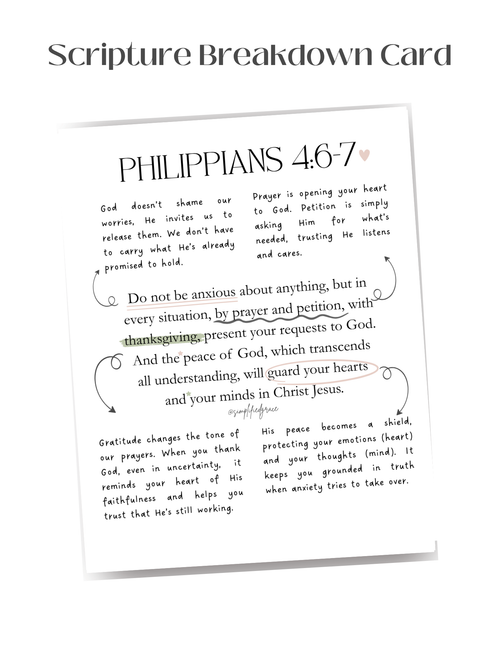 Scripture Breakdown Card
PHILIPPIANS 4:6-7
God doesn't shame our
worries, He invites us to
release them. We don't have
to carry what He's already
promised to hold.
Prayer is opening your heart
to God. Petition is simply
asking Him for what's
needed, trusting He listens
and cares.
Do not be anxious about anything, but in
every situation, by prayer and petition, with
thanksgiving, present your requests to God.
And the peace of God, which transcends
all understanding, will guard your hearts
and your minds in Christ Jesus.
@simplifiedgrace
Gratitude changes the tone of
our prayers. When you thank
God, even in uncertainty, it
reminds your heart of His
faithfulness and helps you
trust that He's still working.
His peace becomes a shield,
protecting your emotions (heart)
and your thoughts (mind). It
keeps you grounded in truth
when anxiety tries to take over.